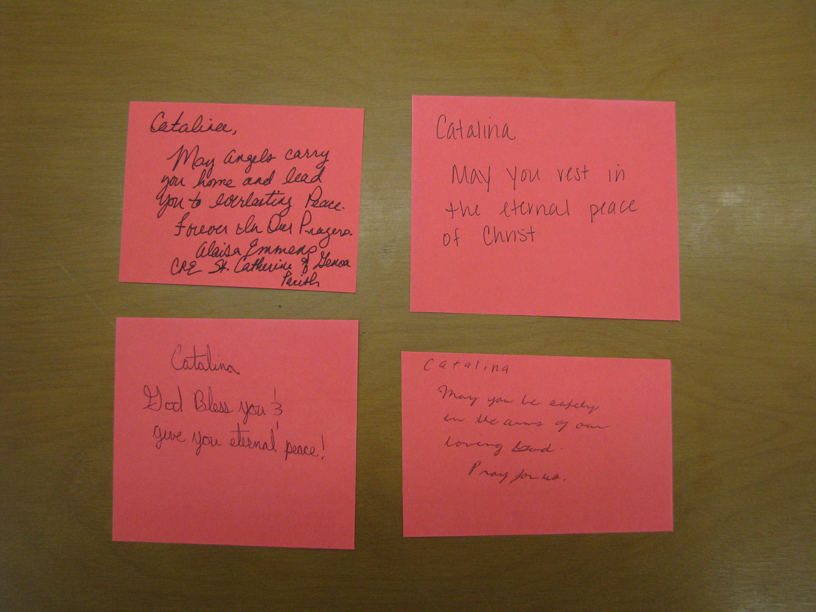 Catalina,
May Angels carry
you home and lead
you to everlasting Peace.
Forever In Our Prayers.
Alaisa Emmens
CRE St. Catherine of Genoa
Parish
Catalina
May you rest in
the eternal peace
of Christ
Catalina
God Bless you &
give you eternal peace!
Catalina
May you be safely
in the arms of our
loving
Pray for us.